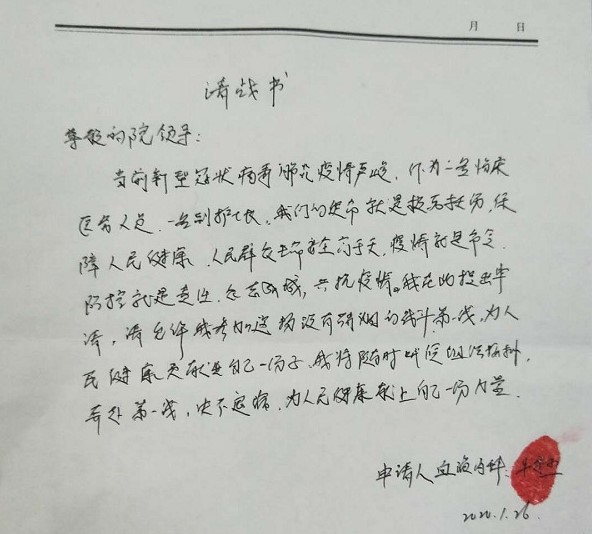 月 日
请战书
尊敬的院领导：
当前新型冠状病毒肺炎疫情严峻，作为一名临床
医务人员，一名副护士长，我们的使命就是救死扶伤，保
障人民健康，人民群众生命安全高于天，疫情就是命令，
防控就是责任，众志成城，共抗疫情。我在此提出申
请，请允许我参加这场没有硝烟的战斗第一线，为人
民健康贡献出自己一份子，我将随时听从组织指挥，
奔赴第一线，决不退缩，为人民健康献上自己一份力量。
申请人 血液内科：
2020.1.26